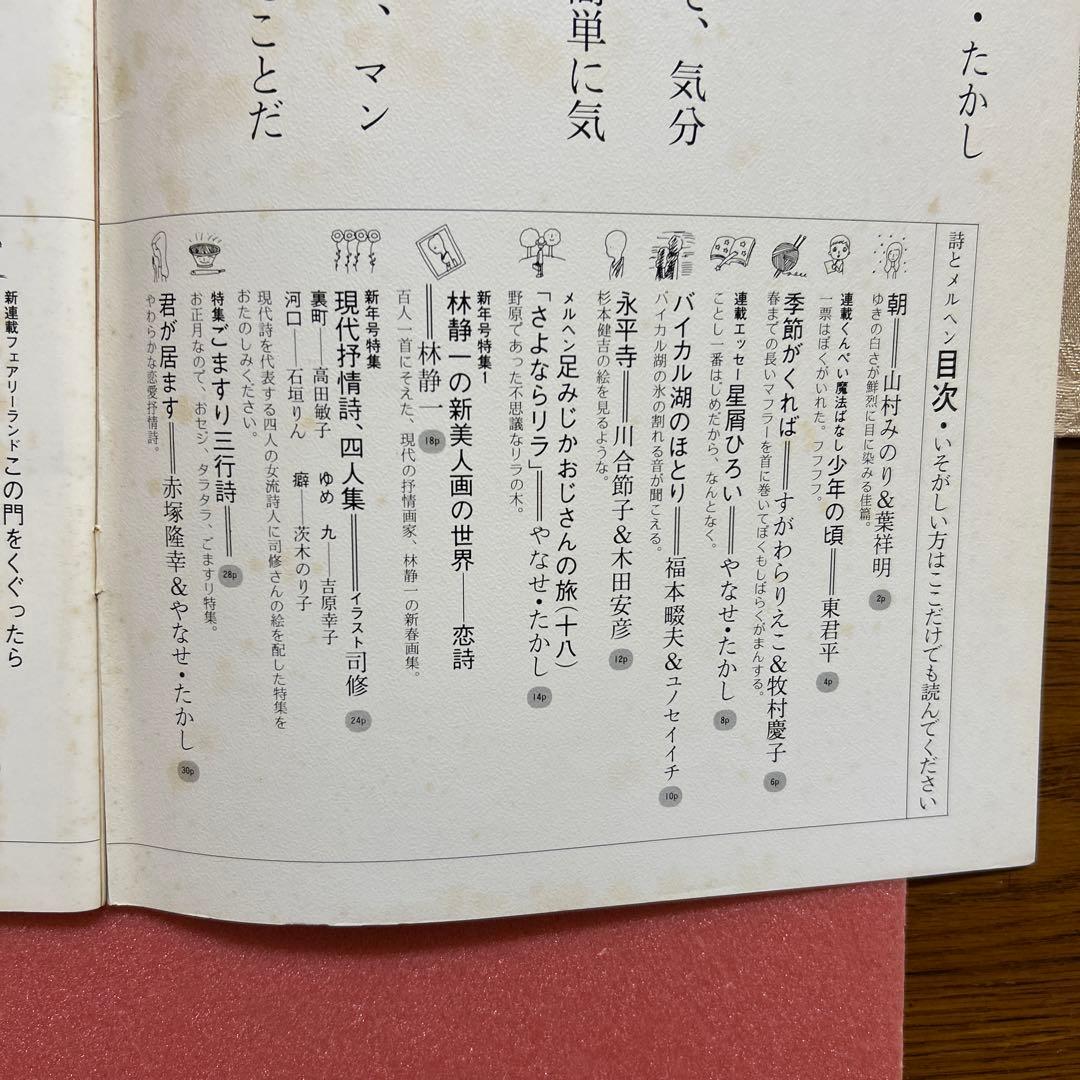 ・たかし
で、気分
簡単に気
、マン
ことだ
詩とメルヘン 目次・いそがしい方はここだけでも読んでください
朝══山村みのり&葉祥明 2p
ゆきの白さが鮮烈に目に染みる佳篇。
連載くんぺい魔法ばなし 少年の頃══東君平 4p
一票はぼくがいれた。フフフフ。
季節がくれば══すがわらりえこ&牧村慶子 6p
春までの長いマフラーを首に巻いてぼくもしばらくがまんする。
連載エッセー 星屑ひろい══やなせ・たかし 8p
ことし一番はじめだから、なんとなく。
バイカル湖のほとり══福本畷夫&ユノセイイチ 10p
バイカル湖の氷の割れる音が聞こえる。
永平寺══川合節子&木田安彦 12p
杉本健吉の絵を見るような。
メルヘン 足みじかおじさんの旅(十八)
「さよならリラ」══やなせ・たかし 14p
野原であった不思議なリラの木。
新年号特集1
林静一の新美人画の世界──恋詩
══林静一 18p
百人一首にそえた、現代の抒情画家、林静一の新春画集。
新年号特集
現代抒情詩、四人集══イラスト司修 24p
裏町──高田敏子 ゆめ 九──吉原幸子
河口──石垣りん 癖──茨木のり子
現代詩を代表する四人の女流詩人に司修さんの絵を配した特集を
おたのしみください。
特集 ごますり三行詩══ 28p
お正月なので、おセジ、タラタラ、ごますり特集。
君が居ます══赤塚隆幸&やなせ・たかし 30p
やわらかな恋愛抒情詩。
新連載フェアリーランド この門をくぐったら